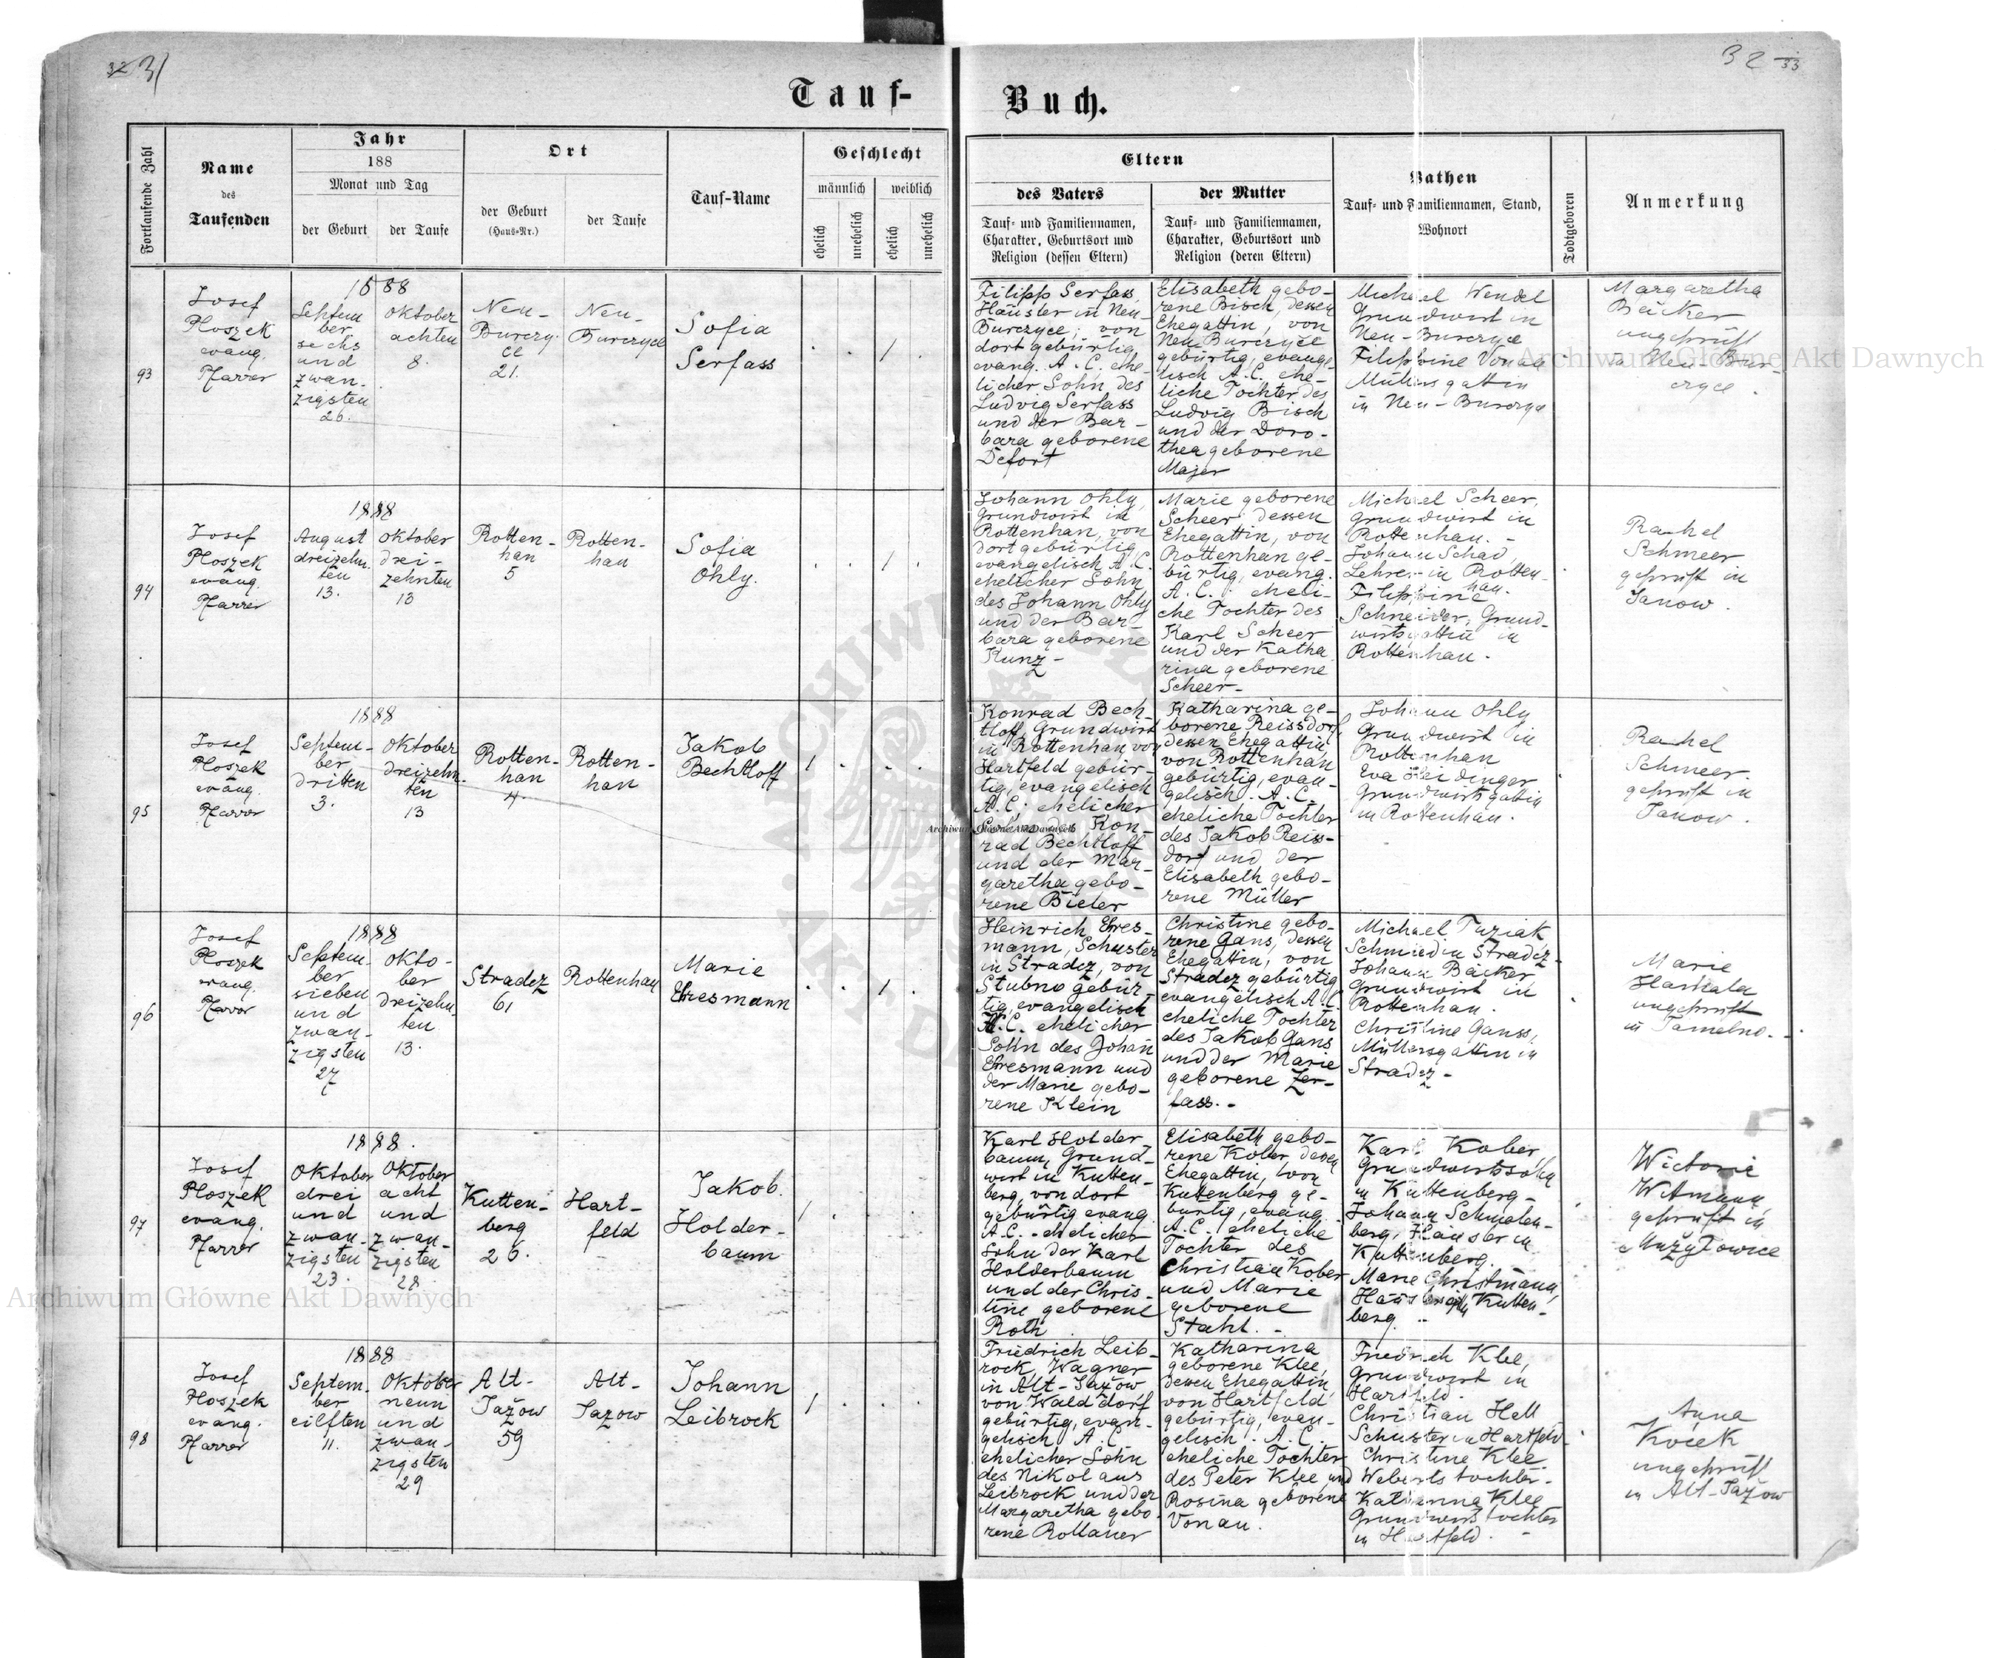 32 31
32 33
Tauf-
Buch.
Fortlaufende Zahl
Name
des
Taufenden
Jahr
188
Monat und Tag
der Geburt
der Taufe
Ort
der Geburt
(Haus-Nr.)
der Taufe
Tauf-Name
Geschlecht
männlich
weiblich
ehelich
unehelich
ehelich
unehelich
Eltern
des Vaters
Tauf- und Familiennamen,
Charakter, Geburtsort und
Religion (dessen Eltern)
der Mutter
Tauf- und Familiennamen,
Charakter, Geburtsort und
Religion (deren Eltern)
Pathen
Tauf- und Familiennamen, Stand,
Wohnort
Todtgeboren
Anmerkung
93
Josef
Ploszek
evang.
Pfarrer
1888
Septem
ber
sechs
und
zwan-
zigsten
26.
Oktober
achten
8.
Neu-
Burczy-
ce
21.
Neu-
Burczyce
Sofia
Serfass
1
Filipp Serfass,
Häusler in Neu-
Burczyce, von
dort gebürtig
evang. A. C. ehe-
licher Sohn des
Ludvig Serfass
und der Bar-
bara geborene
Defort
Elisabeth gebo-
rene Bisch, dessen
Ehegattin, von
Neu-Burczyce
gebürtig, evange-
lisch A. C. ehe-
liche Tochter des
Ludvig Bisch
und der Doro-
thea geborene
Majer
Michael Wendel
Grundwirt in
Neu-Burczyce
Filippine Vonau
Müllersgattin
in Neu-Burczyce
Margaretha
Bäcker
ungeprüft
in Neu-Bur-
czyce.
94
Josef
Ploszek
evang.
Pfarrer
1888
August
dreizehn
ten
13.
Oktober
drei-
zehnten
13
Rotten-
han
5
Rotten-
han
Sofia
Ohly.
1
Johann Ohly,
Grundwirt in
Rottenhan, von
dort gebürtig
evangelisch A. C.
ehelicher Sohn
des Johann Ohly
und der Bar-
bara geborene
Kunz-
Marie geborene
Scheer, dessen
Ehegattin, von
Rottenhan ge-
bürtig, evang.
A. C. eheli-
che Tochter des
Karl Scheer
und der Katha
rina geborene
Scheer-
Michael Scheer,
Grundwirt in
Rottenhan.-
Johann Schad,
Lehrer in Rotten-
han.
Filippine
Schneider, Grund-
wirtsgattin in
Rottenhan.
Rachel
Schmeer
geprüft in
Janow.
95
Josef
Ploszek
evang.
Pfarrer
1888
Septem-
ber
dritten
3.
Oktober
dreizehn-
ten
13
Rotten-
han
4.
Rotten-
han
Jakob
Bechtloff
1
Konrad Bech-
tloff, Grundwirt
in Rottenhan, von
Hartfeld gebür-
tig, evangelisch
A. C. ehelicher
Sohn des Kon-
rad Bechtloff
und der Mar-
garetha gebo-
rene Bieler
Katharina ge-
borene Reissdorf,
dessen Ehegattin
von Rottenhan
gebürtig, evan-
gelisch A. C.
eheliche Tochter
des Jakob Reiss-
dorf und der
Elisabeth gebo-
rene Müller
Johann Ohly
Grundwirt in
Rottenhan
Eva Heidinger
Grundwirtsgattin
in Rottenhan.
Rachel
Schmeer
geprüft in
Janow.
96
Josef
Ploszek
evang.
Pfarrer
1888
Septem-
ber
sieben
und
zwan-
zigsten
27
Okto-
ber
dreizehn-
ten
13.
Stradcz
61
Rottenhan
Marie
Ehresmann
1
Heinrich Ehres-
mann, Schuster
in Stradcz, von
Stubno gebür-
tig, evangelisch
A. C. ehelicher
Sohn des Johan
Ehresmann und
der Marie gebo-
rene Klein
Christine gebo-
rene Gans, dessen
Ehegattin, von
Stradcz gebürtig
evangelisch A. C.
eheliche Tochter
des Jakob Gans
und der Marie
geborene Zer-
fass.-
Michael Tuziak
Schmied in Stradcz-
Johann Bäcker
Grundwirt in
Rottenhan.
Christine Ganss,
Müllersgattin in
Stradcz-
Marie
ungeprüft
97
Josef
Ploszek
evang.
Pfarrer
1888.
Oktober
drei
und
zwan-
zigsten
23.
Oktober
acht
und
zwan-
zigsten
28.
Kutten-
berg
26.
Hart-
feld
Jakob
Holder-
baum
1
Karl Holder-
baum, Grund-
wirt in Kutten-
berg, von dort
gebürtig evang.
A. C. ehelicher
Sohn des Karl
Holderbaum
und der Chris-
tine geborene
Roth
Elisabeth gebo-
rene Kober dessen
Ehegattin, von
Kuttenberg ge-
bürtig, evang.
A. C. eheliche
Tochter des
Christian Kober
und Marie
geborene
Stahl.-
Karl Kober
Grundwirtssohn
in Kuttenberg-
Johann Schmalen-
berg, Häusler in
Kuttenberg.
Marie Christmann,
Häuslersgattin Kutten-
berg.
Wictorie
Witmann
geprüft in
Mużyłowice
98
Josef
Ploszek
evang.
Pfarrer
1888
Septem-
ber
eilften
11.
Oktober
neun
und
zwan-
zigsten
29
Alt-
Jażow
59
Alt-
Jazow
Johann
Leibrock
1
Friedrich Leib-
rock, Wagner
in Alt-Jażow
von Walddorf
gebürtig, evan-
gelisch A. C.
ehelicher Sohn
des Nikolaus
Leibrock und der
Margaretha gebo-
rene Rollauer
Katharina
geborene Klee,
dessen Ehegattin
von Hartfeld
gebürtig, evan-
gelisch A. C.
eheliche Tochter
des Peter Klee und
Rosina geborene
Vonau.
Friedrich Klee,
Grundwirt in
Hartfeld.
Christian Hell
Schuster in Hartfeld-
Christine Klee
Weberstochter-
Katharina Klee
Grundwirtstochter
in Hartfeld.-
Anna
ungeprüft
in Alt-Jażow
Archiwum Główne Akt Dawnych
Archiwum Główne Akt Dawnych
Archiwum Główne Akt Dawnych